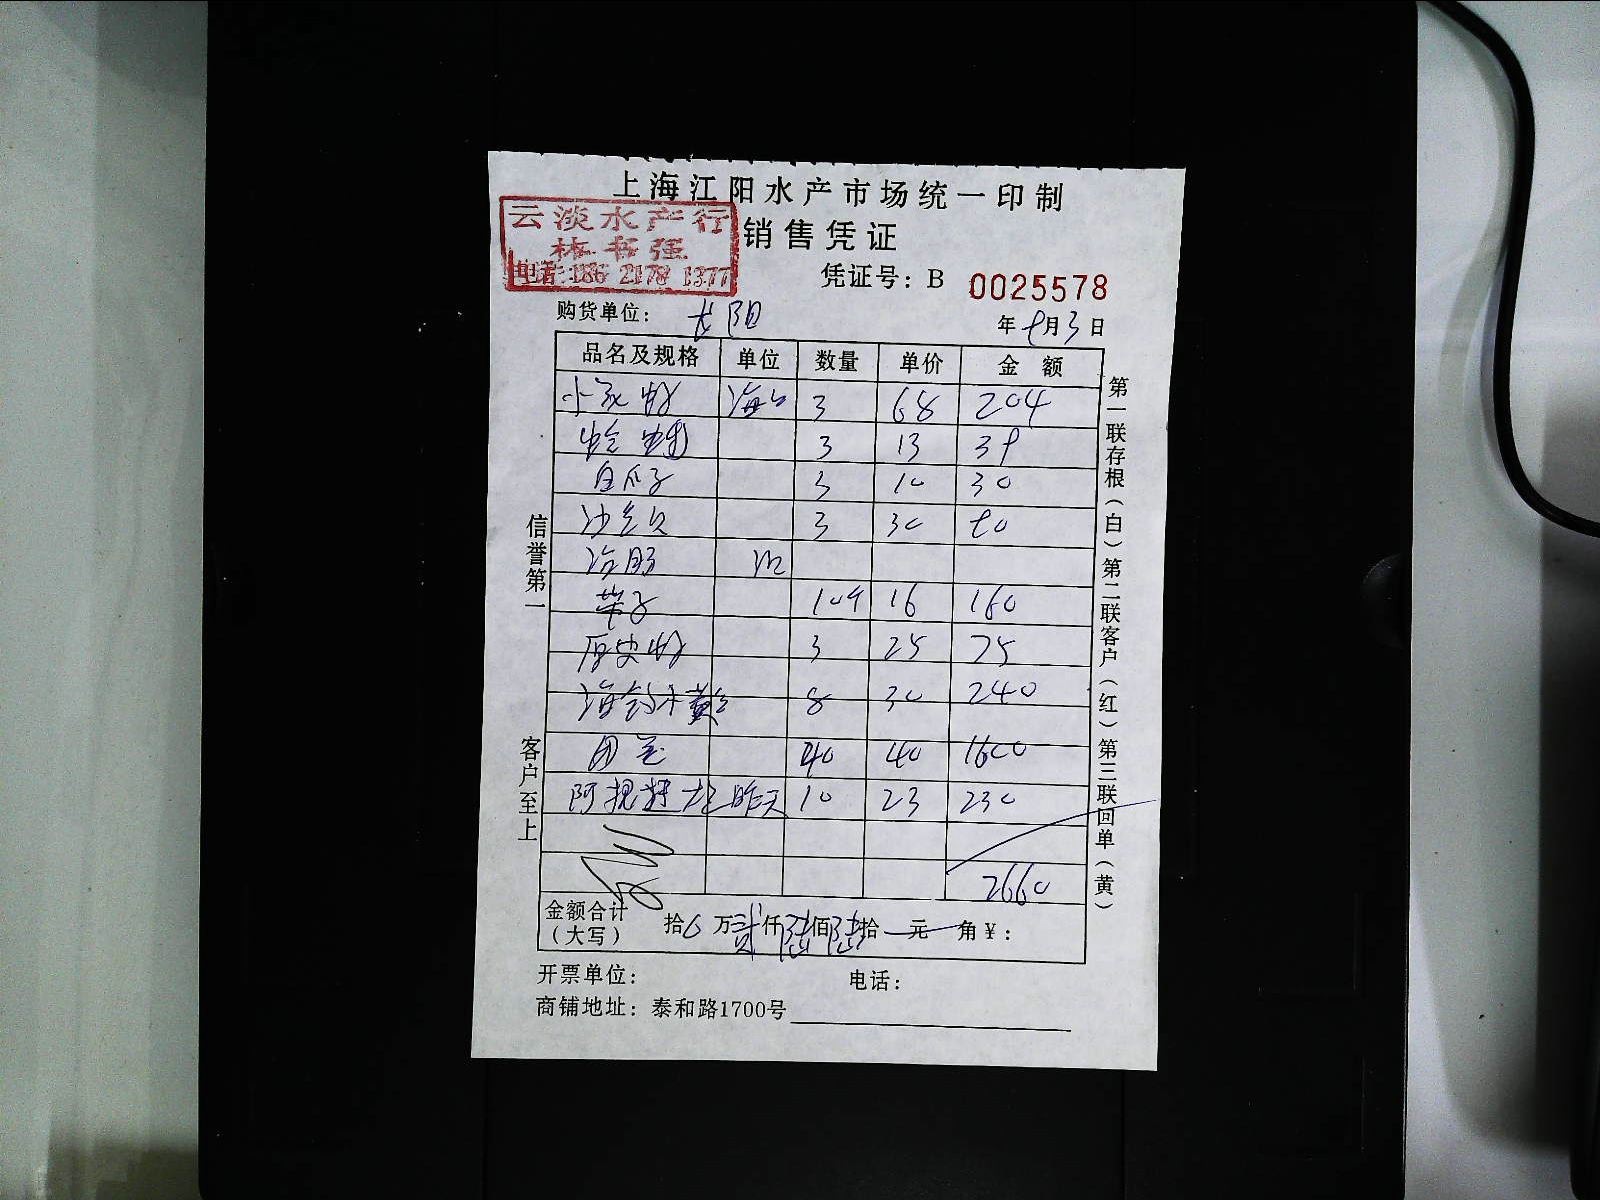 上海江阳水产市场统一印制
云淡水产行
销售凭证
林书强
电话:186 2178 1377
凭证号：B 0025578
购货单位： 长阳 年 9月3日
品名及规格 单位 数量 单价 金 额
小 3 68 204
蛤 3 13 39
白瓜子 3 10 30
沙 贝 3 30 90
带子 10斤 16 160
3 25 75
海 黄 8 30 240
40 40 1600
阿根廷 昨天 10 23 230
2660
金额合计（大写） 拾 万贰仟陆佰陆拾 元 角￥：
开票单位： 电话：
商铺地址：泰和路1700号
信誉第一 客户至上
第一联存根（白）第二联客户（红）第三联回单（黄）